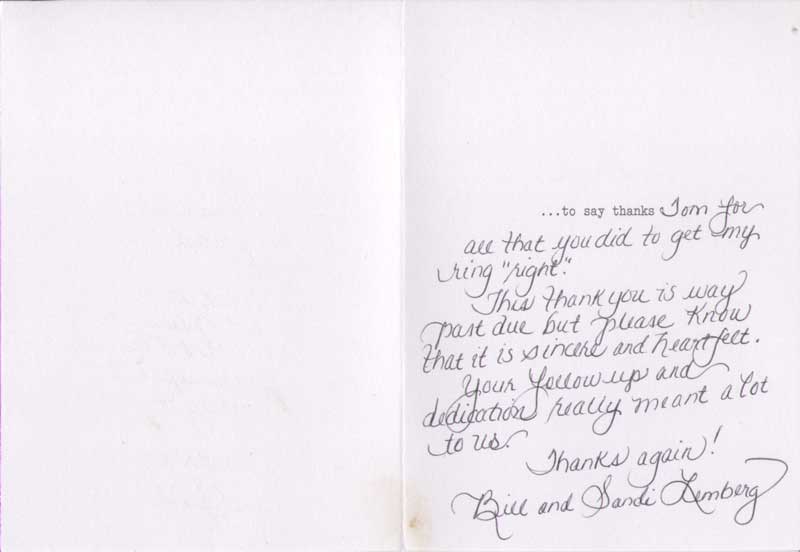 ...to say thanks Tom for
all that you did to get my
ring "right."
This thank you is way
past due but please know
that it is sincere and heartfelt.
Your follow up and
dedication really meant a lot
to us.
Thanks again!
Bill and Sandi Lemberg